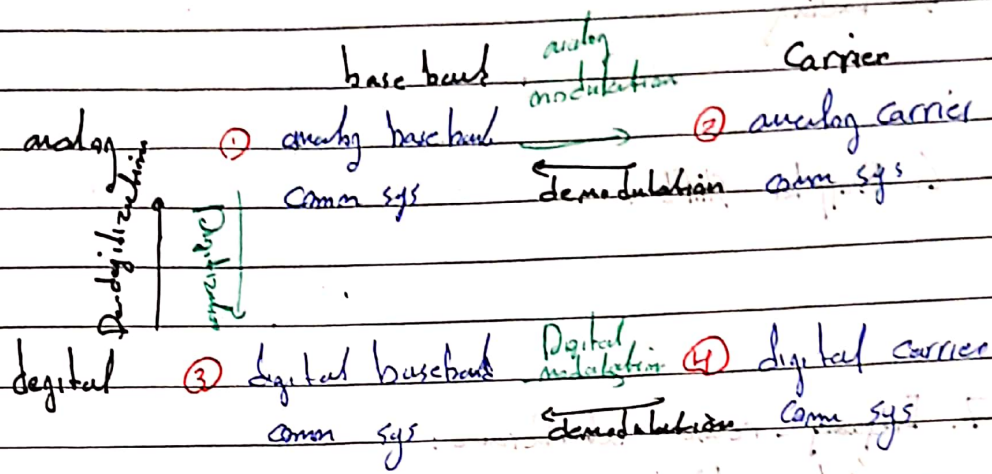 base band analog modulation Carrier
analog ① analog base band ② analog carrier
comm sys demodulation comm sys
De-digitization Digitization
degital ③ digital baseband Digital modulation ④ digital carrier
comm sys demodulation Comm sys